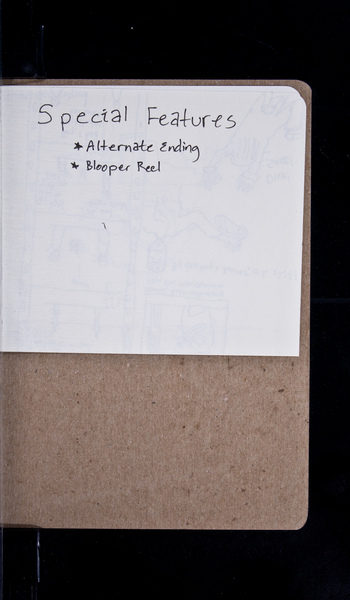 Special Features
* Alternate Ending
* Blooper Reel